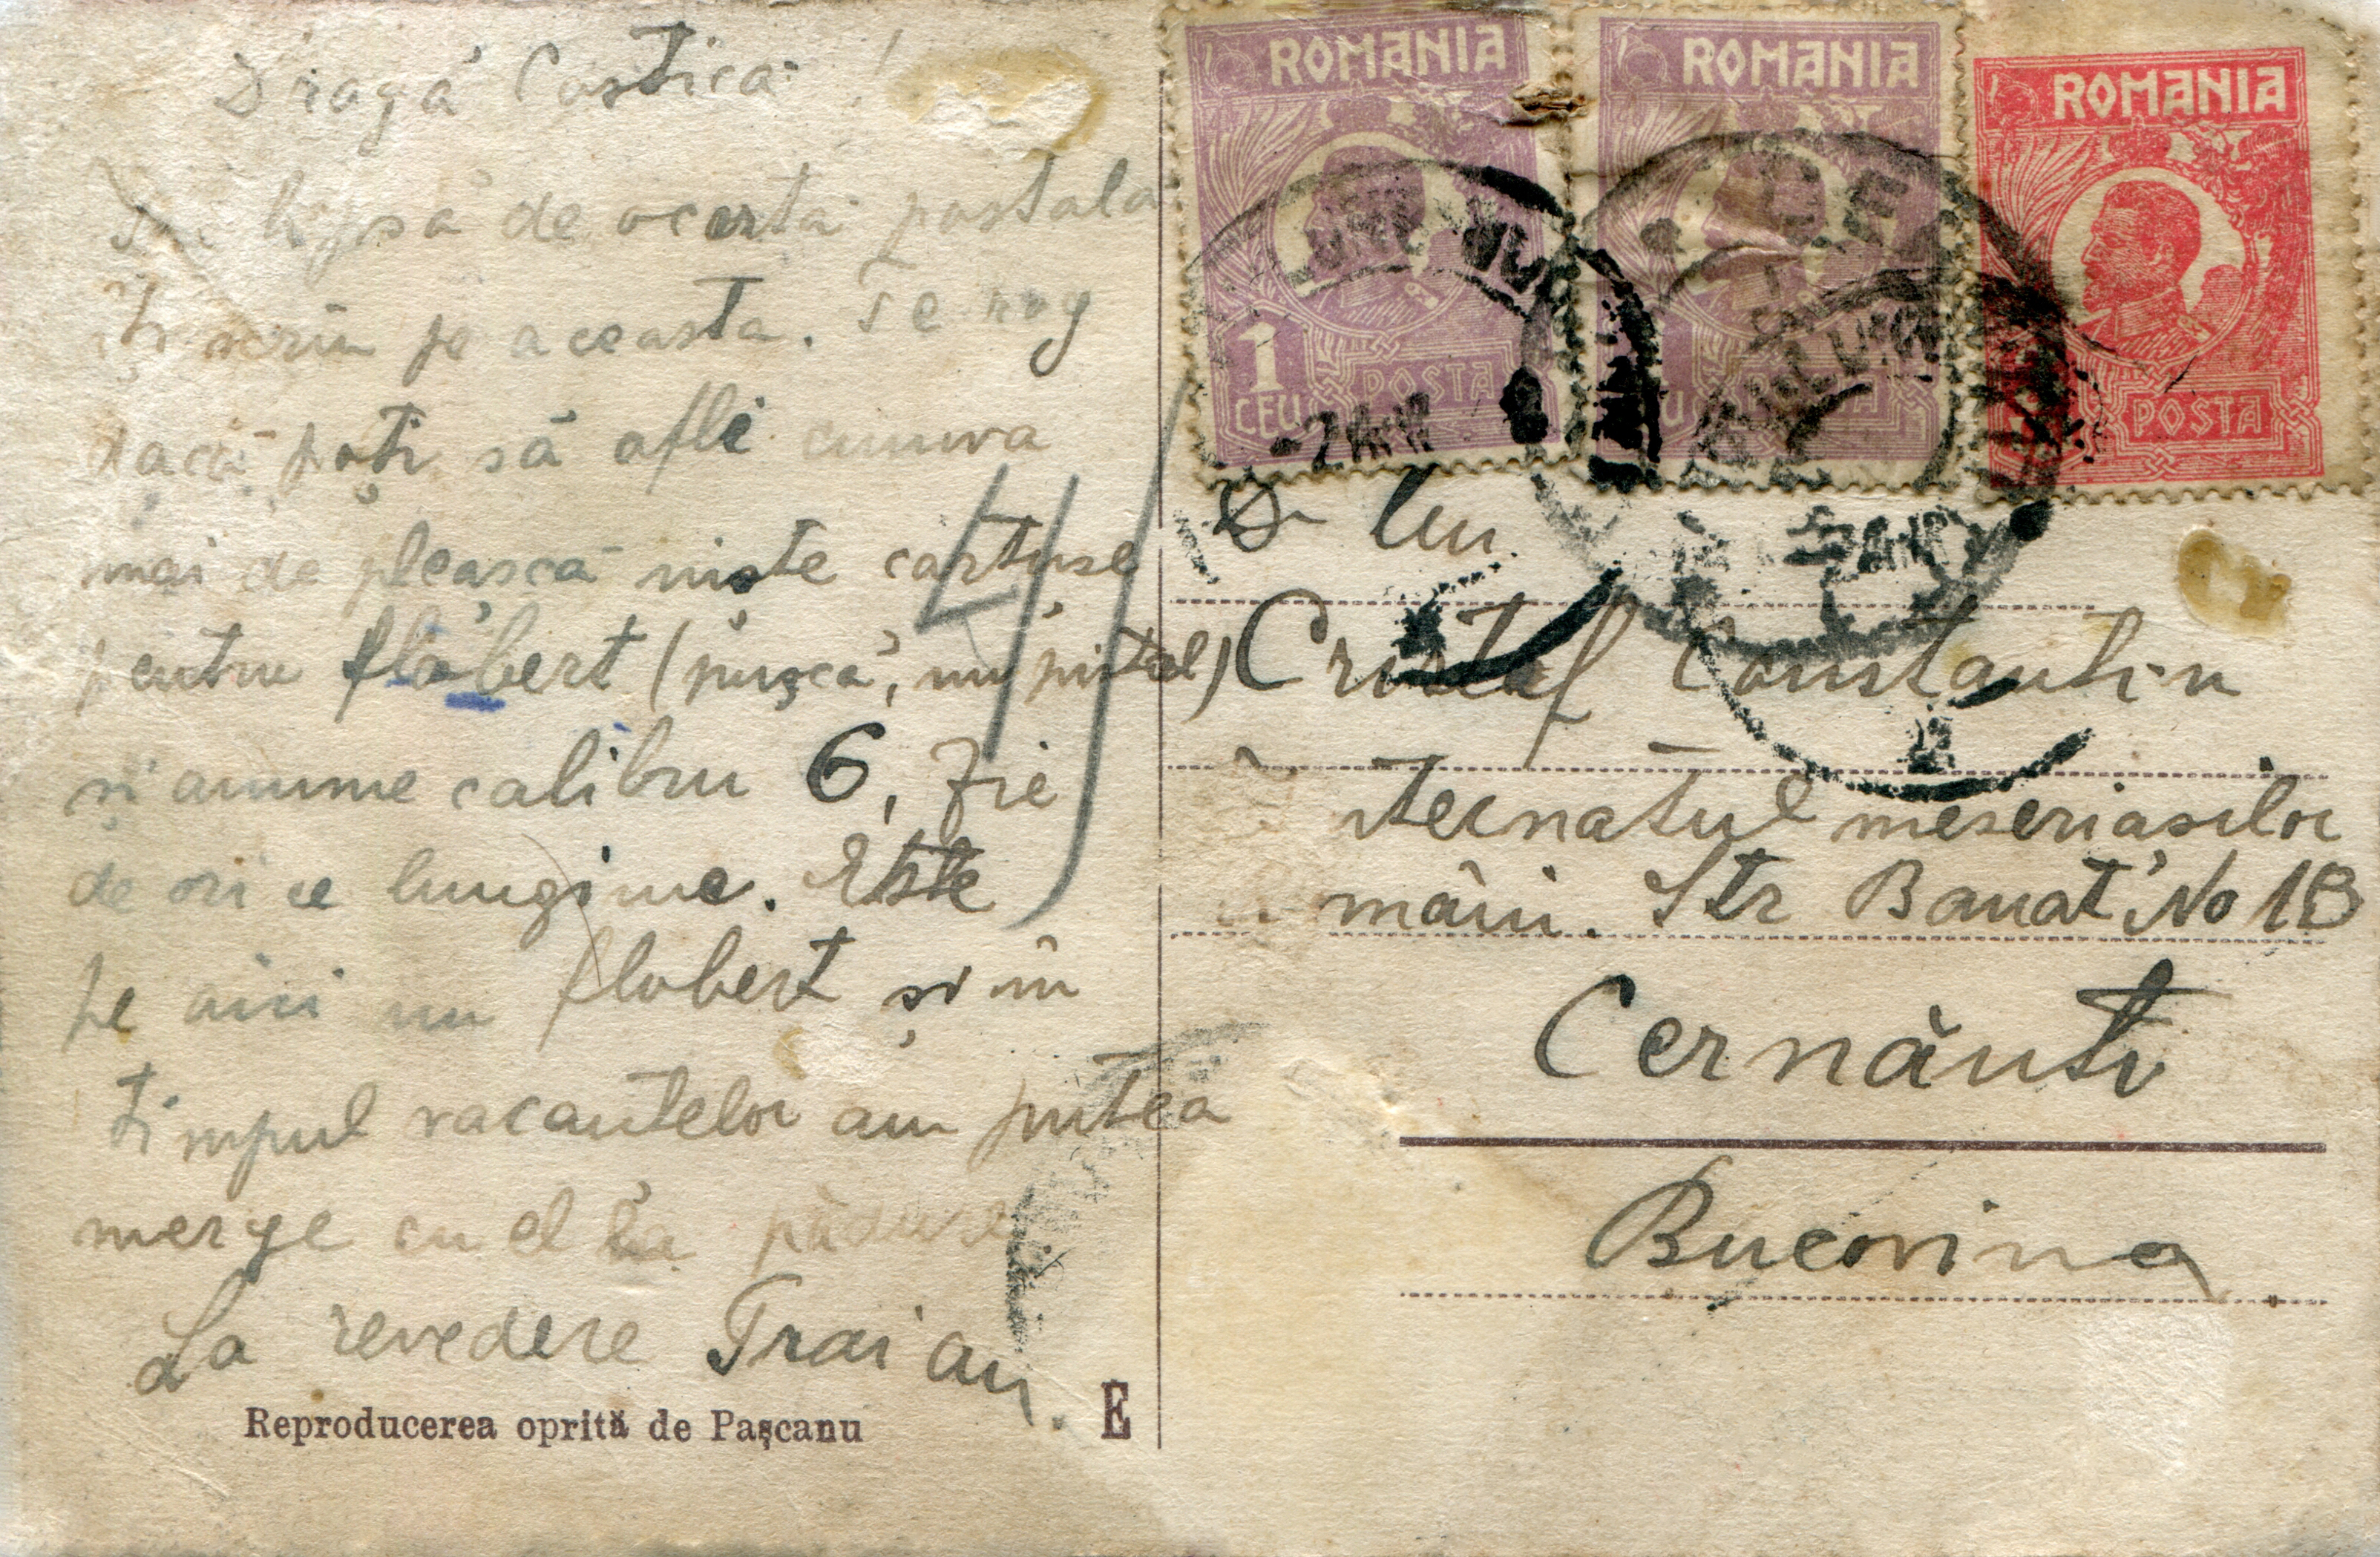 Dragă Costica !
În lipsă de o cartă postala
Îți scriu pe aceasta. Te rog
dacă poți să afli cumva
mai de plească niște cartușe
pentru flobert (pușcă, nu pistol)
și anume calibru 6, fie
de ori ce lungime. Este
pe aici un flobert și în
timpul vacantelor am putea
merge cu el la pădure
La revedere Traian.
Reproducerea oprită de Pașcanu
E
ROMANIA
1
CEU
POSTA
ROMANIA
ROMANIA
POSTA
41
D-lui
Cristof Constantin
Internatul meseriasilor
români. Str Banat No 1B
Cernăuți
Bucovina